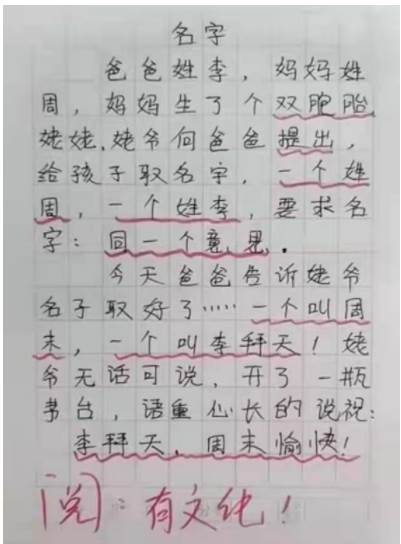 名字
爸爸姓李，妈妈姓
周，妈妈生了个双胞胎
姥姥.姥爷向爸爸提出，
给孩子取名字，一个姓
周，一个姓李，要求名
字：同一个意思.
今天爸爸告诉姥爷
名子取好了……一个叫周
末，一个叫李拜天！姥
爷无话可说，开了一瓶
茅台，语重心长的说祝：
李拜天，周末愉快！
阅：有文化！